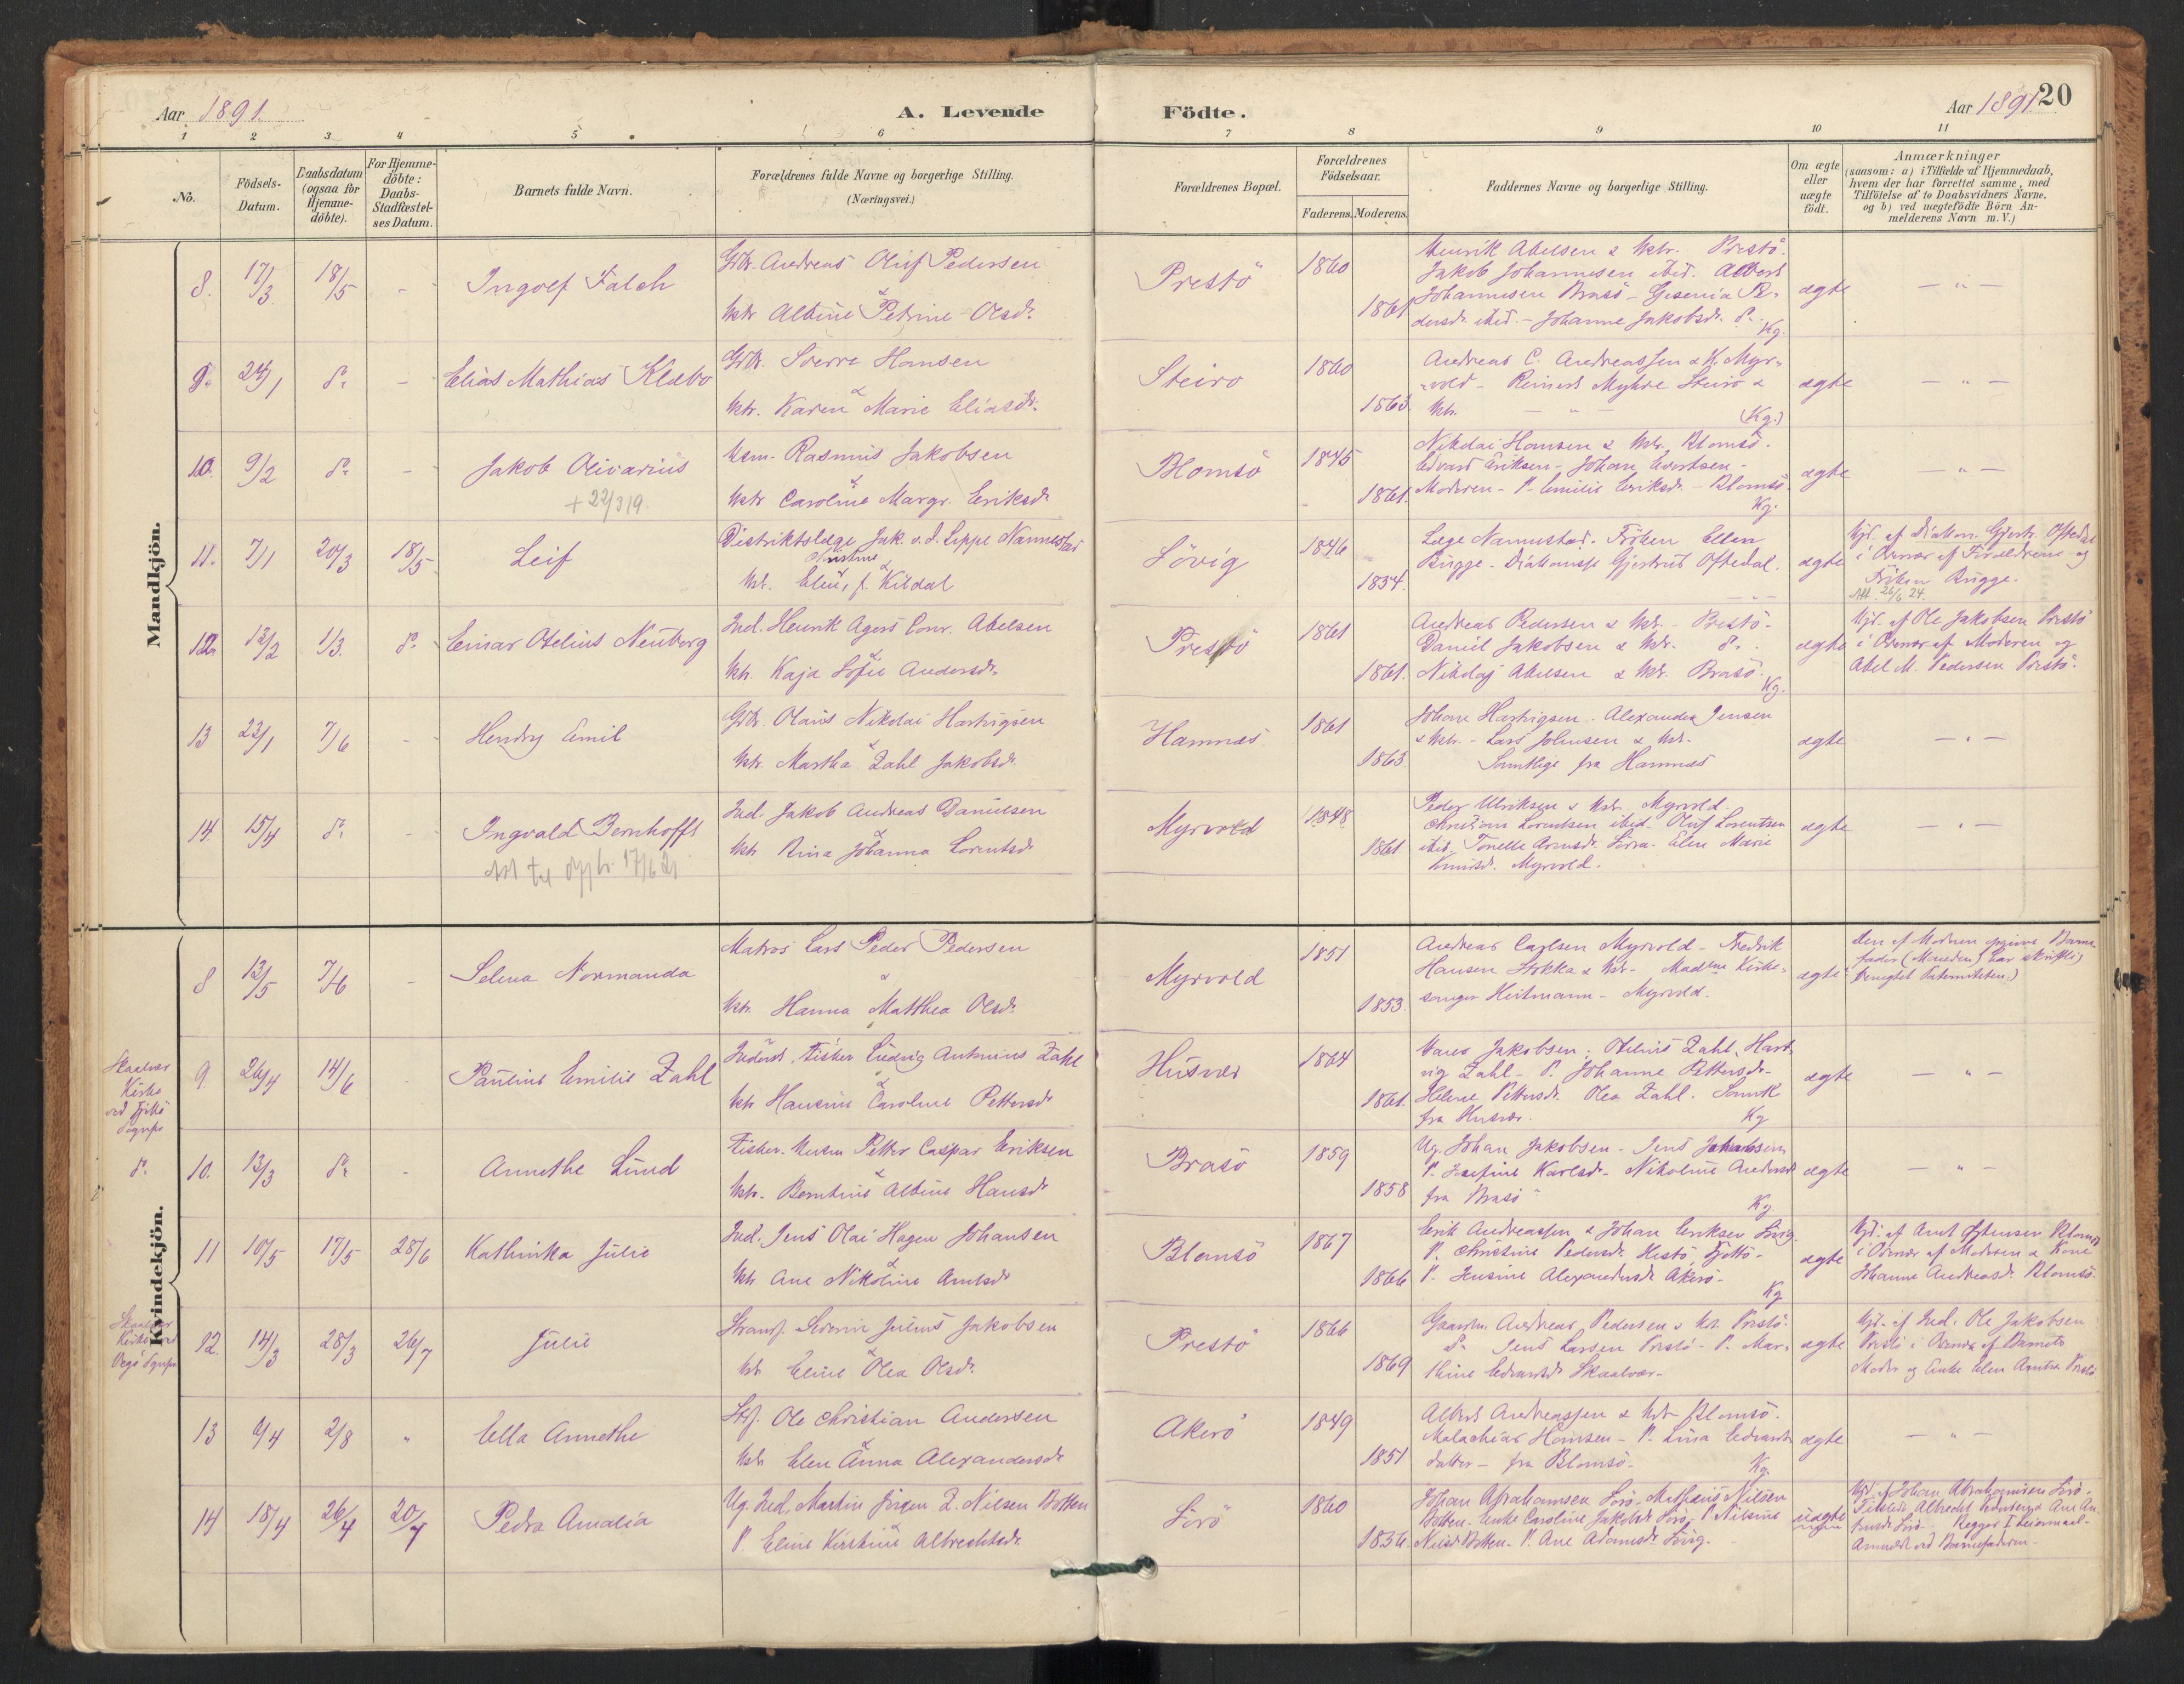 Aar 1891.
A. Levende
Födte.
Aar 1891
20
1 2 3 4 5 6 7 8 9 10 11
No.
Födsels-
Datum.
Daabsdatum
(ogsaa for
Hjemme-
döbte).
For Hjemme-
döbte:
Daabs-
Stadfæstel-
ses Datum.
Barnets fulde Navn.
Forældrenes fulde Navne og borgerlige Stilling.
(Næringsvei.)
Forældrenes Bopæl.
Forældrenes
Födselsaar.
Faderens. Moderens.
Faddernes Navne og borgerlige Stilling.
Om ægte
eller
uægte
födt.
Anmærkninger
(saasom: a) i Tilfælde af Hjemmedaab,
hvem der har forrettet samme, med
Tilföielse af to Daabsvidners Navne,
og b) ved uægtefödte Börn An-
melderens Navn m. V.)
Mandkjön.
8. 17/3 18/5 - Ingolf Falch
Gbr. Andreas Oluf Pedersen
&
Hstr Albine Petrine Olsdr.
Prestö
1860
1861
Henrik Abelsen & Hstr. Prestö.
Jakob Johannesen ibid. Albert
Johannesen Brasö - Gjesenia Pe-
dersdr. ibid. - Johanne Jakobsdr. do.
Kg.
ægte
— " —
9. 24/1 do - Elias Mathias Klæbo
Gbr. Sverre Hansen
&
Hstr. Karen Marie Eliasdr.
Steiro
1860
1863.
Andreas C. Andreassen & K. Myr-
vold - Reinert Myhre Steirö &
Hstr. — " — (Kg.)
ægte
— " —
10. 9/2 do - Jakob Olivarius
+ 22/3 19.
Hsm. Rasmus Jakobsen
&
Hstr Caroline Margr. Eriksdr
Blomsö
1845
1861.
Nikolai Hansen & Hstr, Blomsö.
Edvard Eriksen - Johan Evertsen -
Moderen - P. Emilie Eriksdr. - Blomsö.
Kg.
ægte
— " —
11. 7/1 20/3 18/5 Leif
Distriktslæge Jak. v. d. Lippe Nannestad
&
Hst. Elen, f. Kildal
Sövig
1846
1854.
Læge Nannestad. Fröken Ellen
Bugge. Diakonisse Gjertrud Oftedal.
ægte
Hjd. af Diakon. Gjertr. Oftedal
i Overvær af Forældrene og
Fröken Bugge.
Att. 26/6 24.
12. 13/2 1/3. do Einar Otelius Neuberg
Ind. Henrik Agers Conr. Abelsen
Hstr. Kaja Sofie Andersdr.
Prestö
1861
1861.
Andreas Pedersen & Hstr. - Prestö.
Daniel Jakobsen & Hstr. do.
Nikolaj Abelsen & Hstr. Brasö.
Kg.
ægte
Hjd. af Ole Jakobsen Prestö
i Overvær af Moderen og
Abel M. Pedersen Prestö.
13 23/1 7/6 - Hendry Emil
Gbr. Olaus Nikolai Hartvigsen
&
Hstr. Martha Zahl Jakobsdr.
Hamnæs
1861
1863
Johan Hartvigsen. Alexander Jensen
& Hstr. - Lars Johnsen & Hstr.
Samtlige fra Hamnæs
ægte
— " —
14. 15/4 do - Ingvald Bernhofft
17/6 21
Ind. Jakob Andreas Danielsen
&
Hstr Rina Johanna Lorentsdr
Myrvold
1848
1861
Peder Ulriksen & Hstr. Myrvold.
Christian Lorentsen ibid. Oluf Lorentsen
ibid. Tonelle Arensdr. Sörra. Elen Marie
Knudsdr. Myrvold.
ægte
— " —
Kvindekjön.
8 13/5 7/6 - Selma Normanda
Matros Lars Peder Pedersen
&
Hstr. Hanna Matthea Olsdr.
Myrvold
1851
1853
Andreas Carlsen Myrvold - Fredrik
Hansen Stokka & Hstr. Madme Kirke-
sanger Heitmann - Myrvold.
ægte
Den af Moderen opgivne Barne-
fader (Manden) har skriftlig
benegtet Paterniteten.)
Skaalvær
Kirke
ved Tjöttö
Sognepr
9 26/4 14/6 Pauline Emilie Zahl
Inderst, Fisker Ludvig Antonius Zahl
&
Hstr Hansine Caroline Pettersdr
Husvær
1864
1861.
Hans Jakobsen. Otelius Zahl. Hart-
vig Zahl - P. Johanne Pettersdr.
Helene Pettersdr. Olea Zahl. Samtl
fra Husvær. Kg
ægte
— " —
do. 10. 13/3 do - Annethe Lund
Fisker. Husm Petter Caspar Eriksen
&
Hstr. Berntine Albine Hansdr
Brasö
1859
1858
Ug. Johan Jakobsen - Jens Jakobsen
P. Josefine Karlsdr. Nikoline Andersdr
fra Brasö
Kg
ægte
— " —
11 10/5 17/5 28/6 Kathinka Julie
Ind. Jens Olai Hagen Johansen
&
Hstr Ane Nikoline Arntsdr
Blomsö
1867
1866
Erik Andreassen & Johan Eriksen Sövig.
P. Christine Pedersdr. Hestö, Tjöttö -
P. Jensine Alexandersdr Akerö -
Kg
ægte
Hjd. af Arnt Blomsö
i Overvær af Moderen & Kone
Johanne Andreasdr. Blomsö.
Skaalvær
Kirke ved
Vegö Sognepr
12. 14/3 28/3 26/7 Julie
Strands. Severin Julius Jakobsen
&
Hstr Eline Olea Olsdr.
Prestö
1866
1869
Gaardm. Andreas Pedersen & Hst. Prestö.
do Jens Larsen Prestö - P. Mar-
thine Edvardsdr Skaalvær -
ægte
Hjd. af Ind. Ole Jakobsen
Prestö i Overvær af Barnets
Moder og Enke Elen Arntsdr Prestö
13 9/4 2/8 " Ella Annethe
Strf. Ole Christian Andersen
&
Hstr Elen Anna Alexandersdr
Akerö
1849
1851
Albert Andreassen & Hst. Blomsö.
Malachias Hansen - P. Lina Edvards-
datter - fra Blomsö.
Kg.
ægte
— " —
14 18/4 26/4 20/7 Pedra Amalia
Ug. Ind. Martin Jörgen Z. Nilsen Botten
&
P. Eline Kirstine Albrechtsdr.
Sörö
1860
1856.
Johan Abrahamsen Sörö. Mathæus Nilsen
Botten. Enke Caroline Jakobsdr Sörö, P. Nilsine
Nilsdr Botten. P. Ane Adamsdr Sövig.
uægte
Hjd. af Johan Abrahamsen Sörö.
Begges I Leiermaal.
Anmeldt ved Barnefaderen.